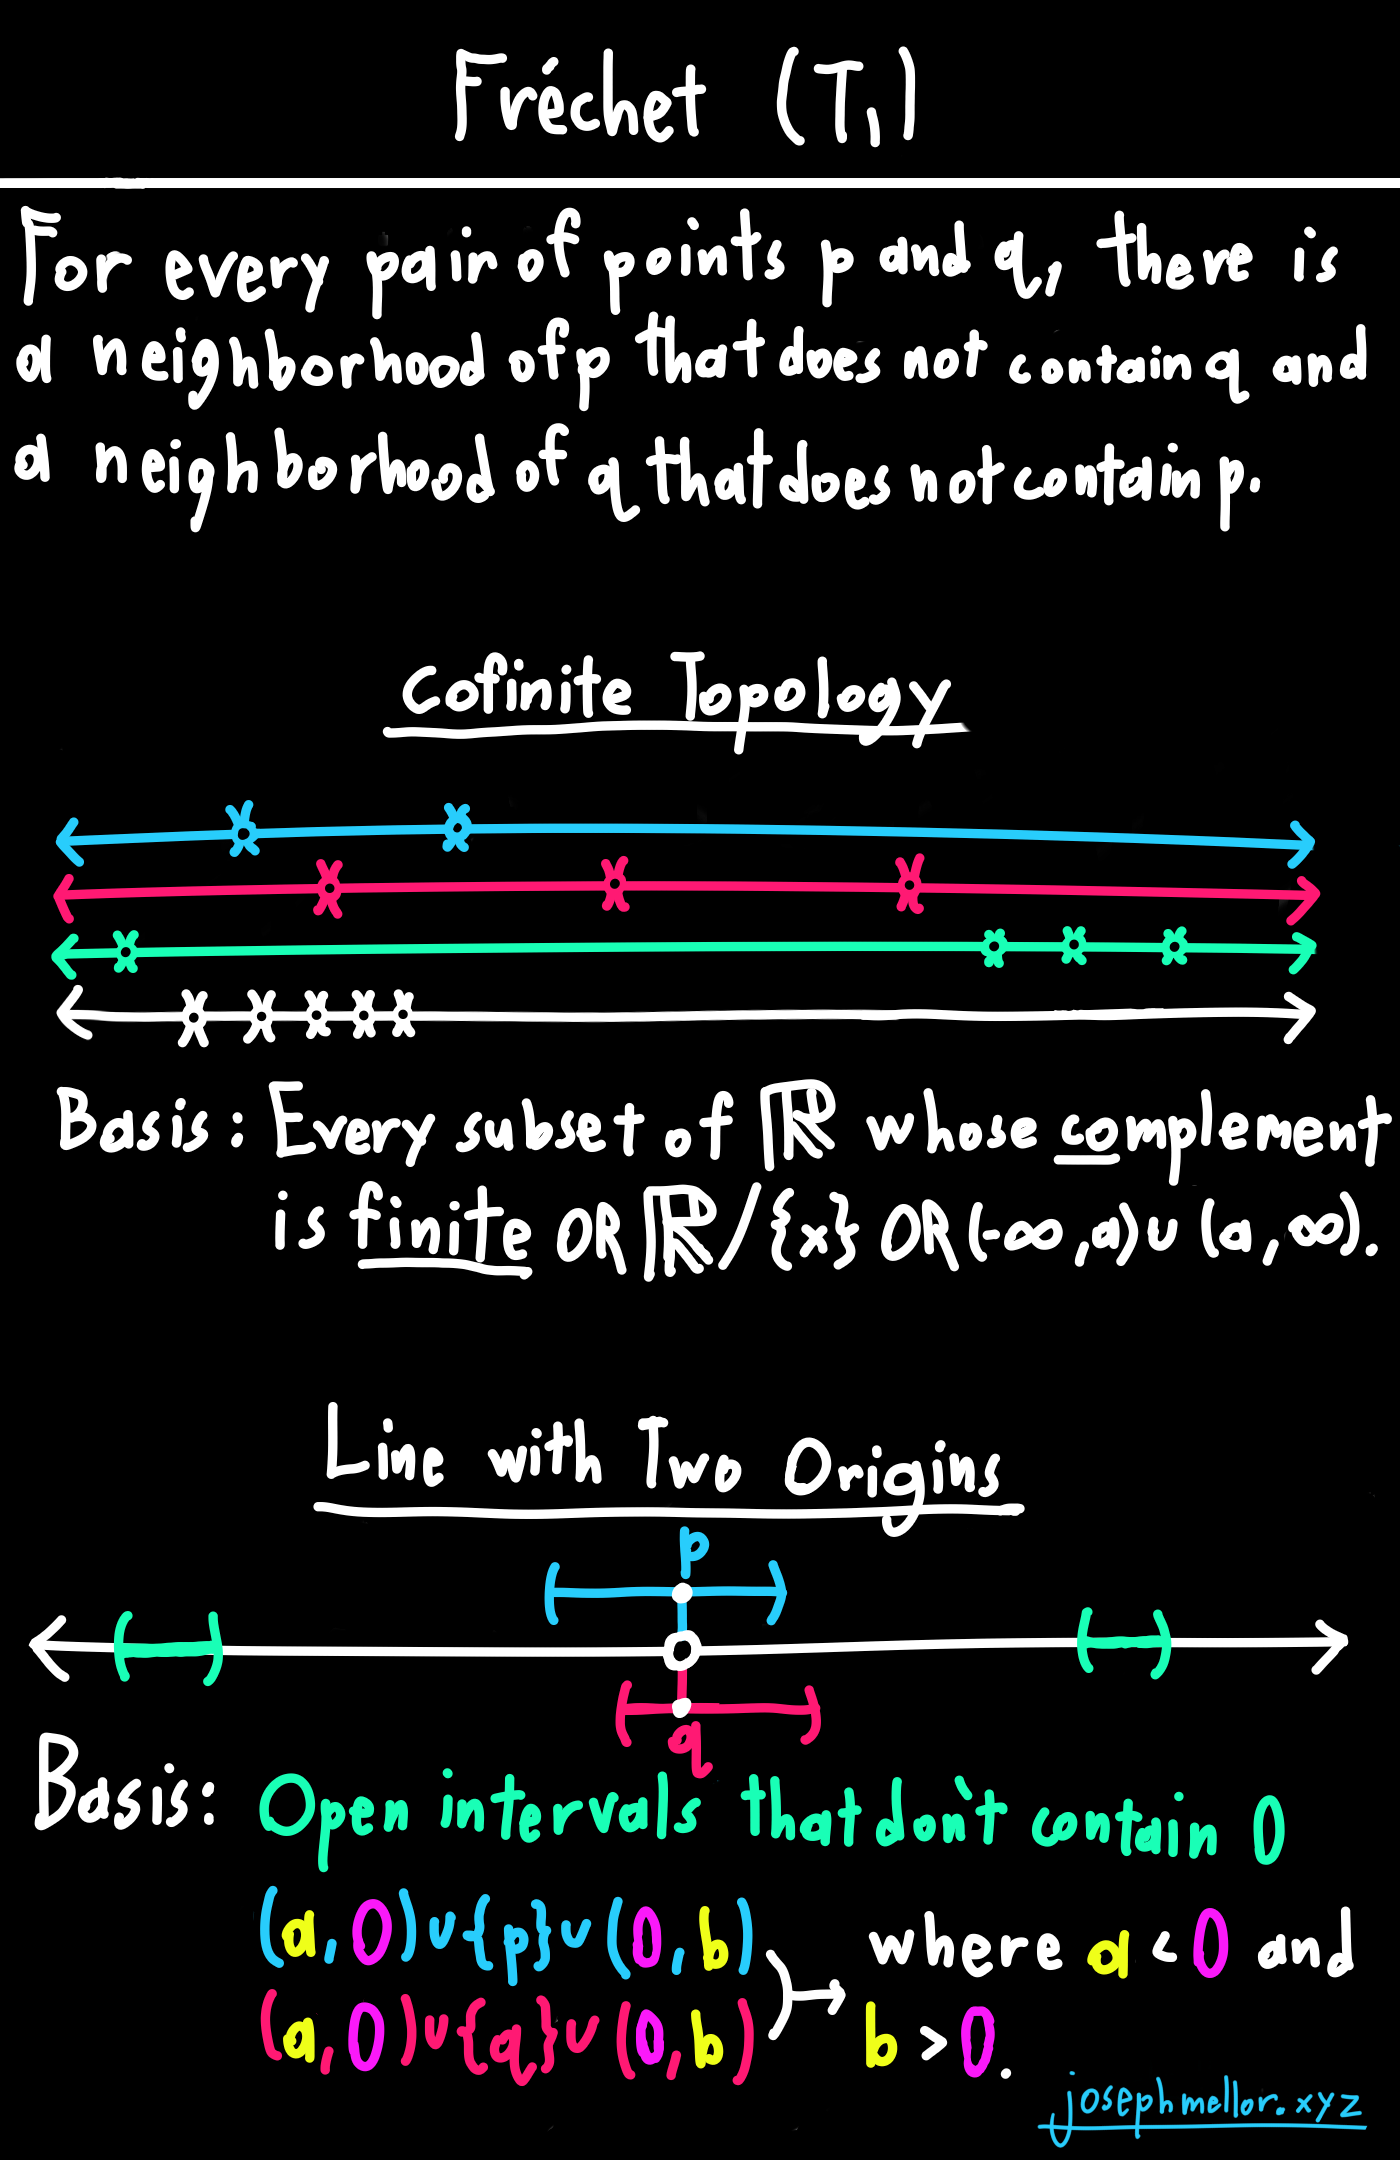 Fréchet (T₁)
For every pair of points p and q, there is
a neighborhood of p that does not contain q and
a neighborhood of q that does not contain p.
Cofinite Topology
Basis: Every subset of ℝ whose complement
is finite OR ℝ/{x} OR (-∞,a)∪(a,∞).
Line with Two Origins
p
q
Basis: Open intervals that don't contain 0
(a,0)∪{p}∪(0,b)
(a,0)∪{q}∪(0,b)
where a < 0 and
b > 0.
josephmellor.xyz